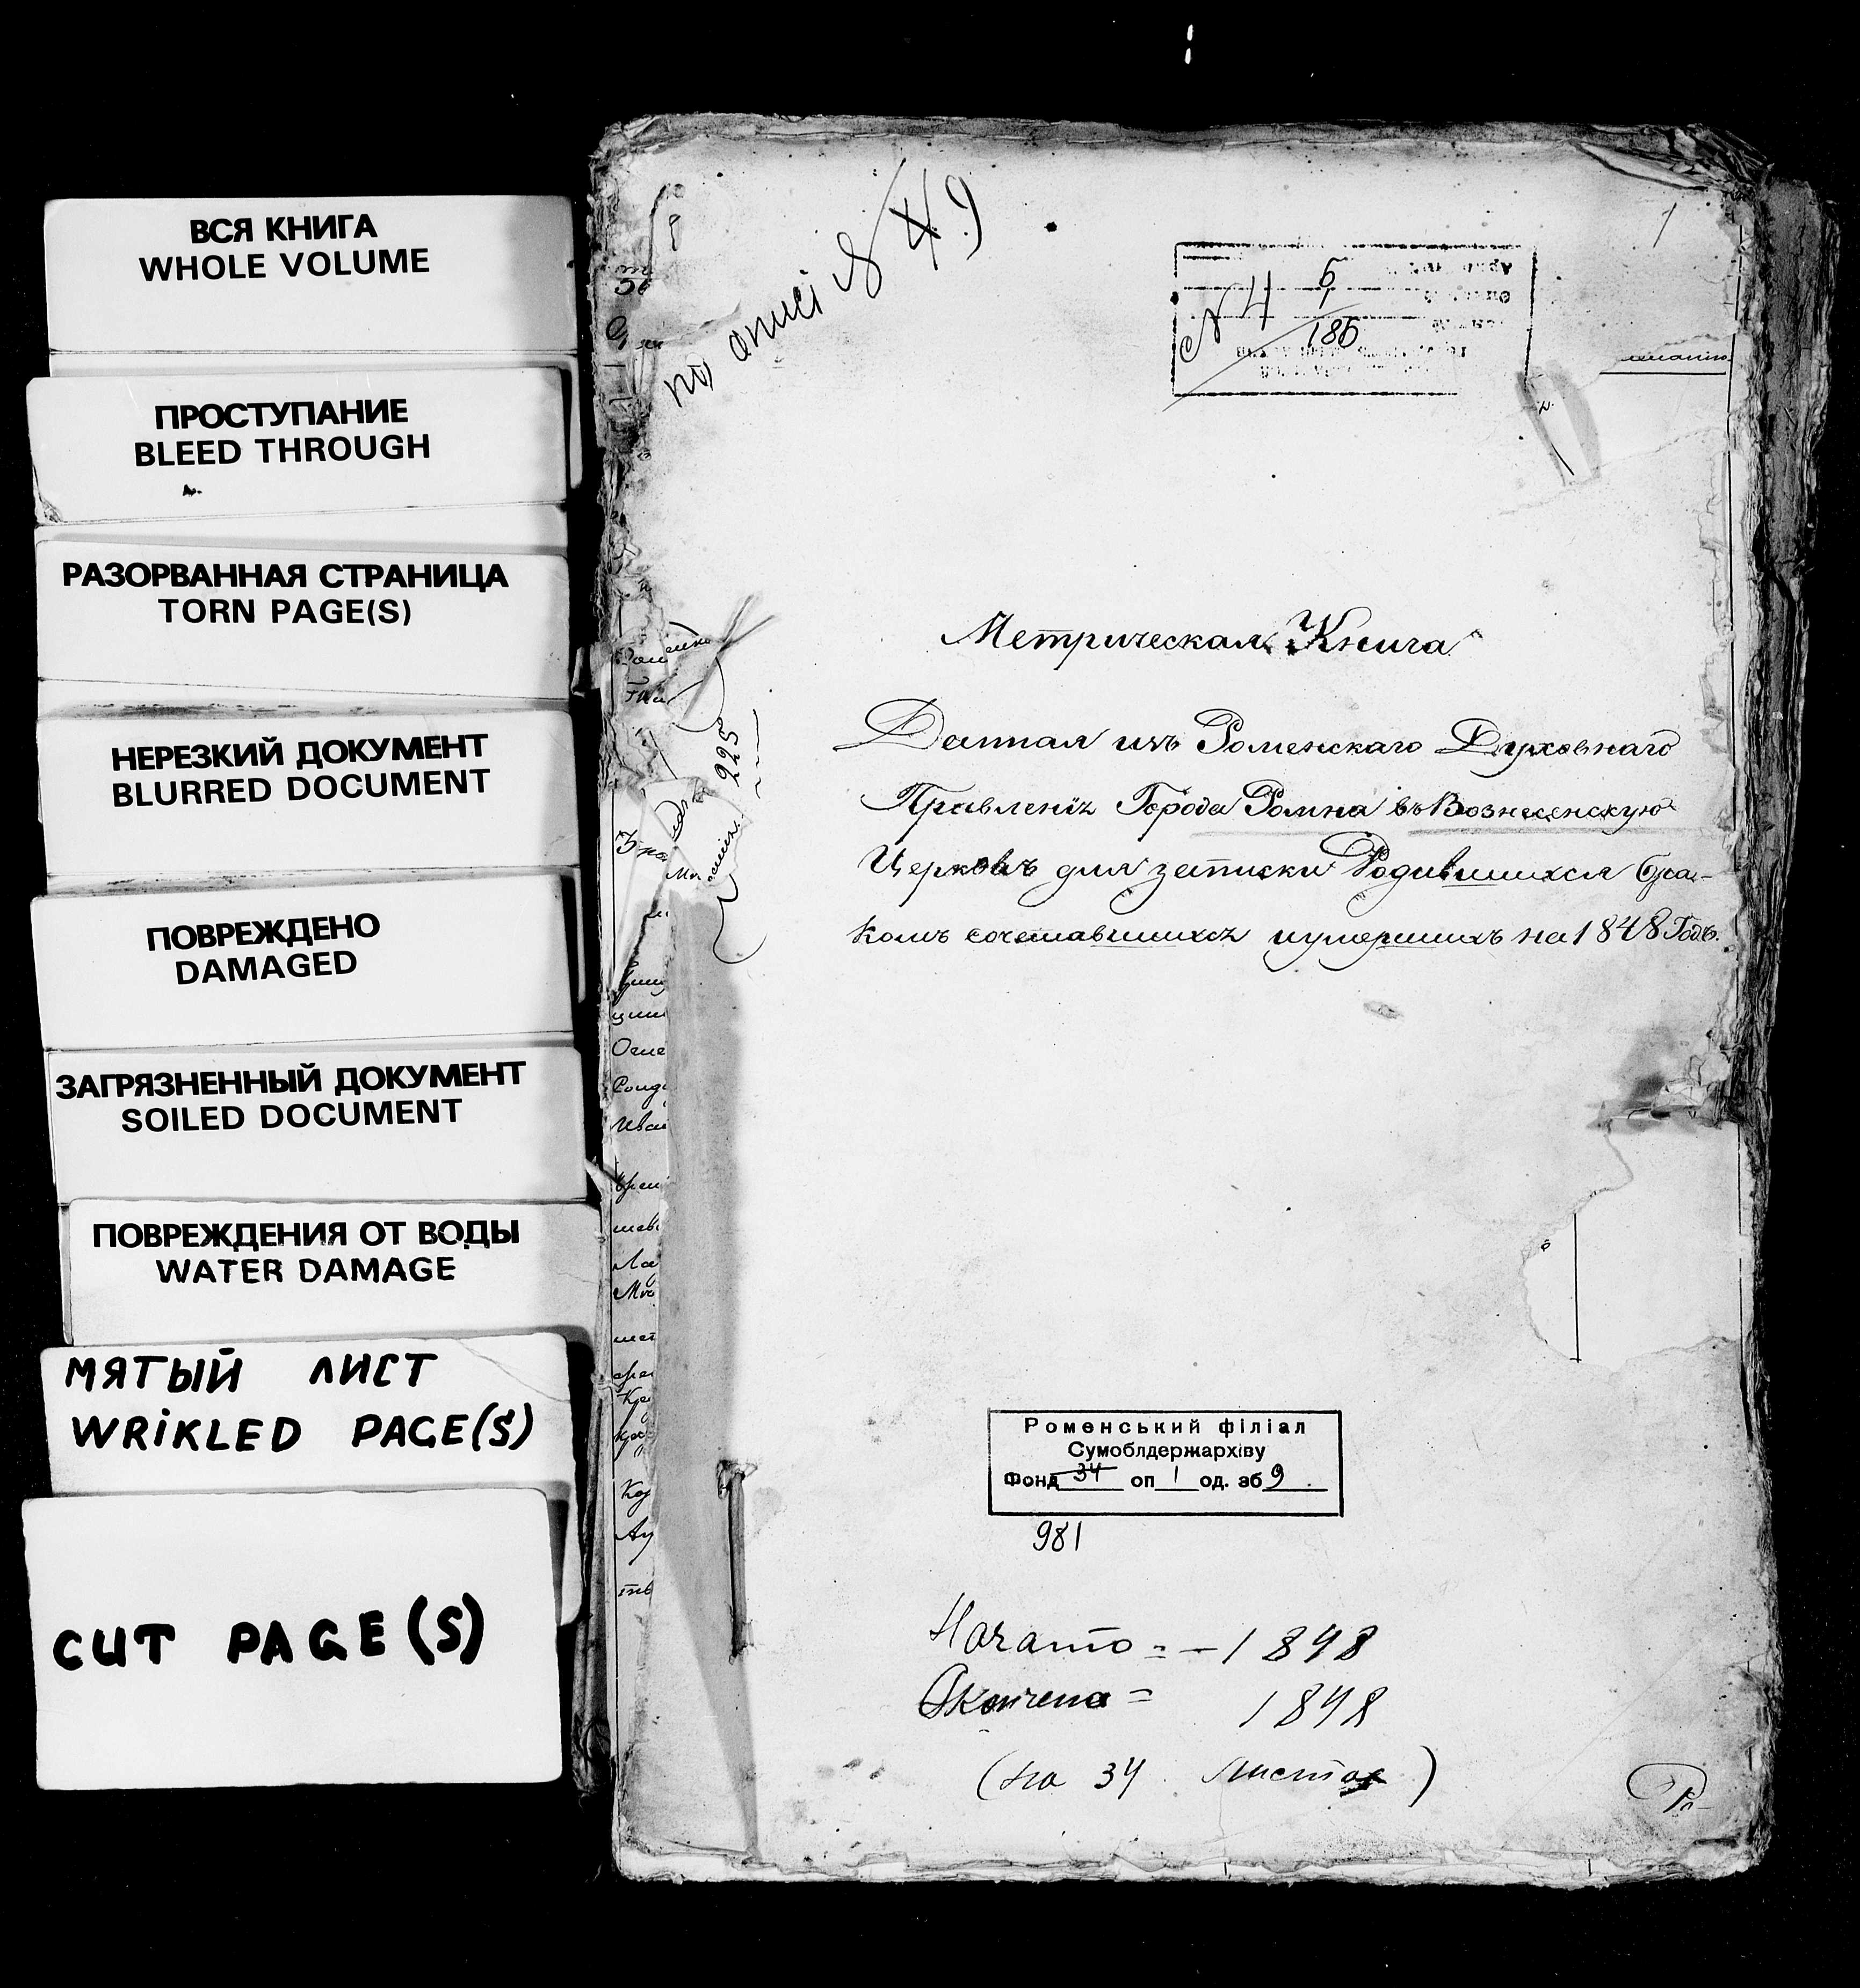 ВСЯ КНИГА
WHOLE VOLUME
ПРОСТУПАНИЕ
BLEED THROUGH
РАЗОРВАННАЯ СТРАНИЦА
TORN PAGE(S)
НЕРЕЗКИЙ ДОКУМЕНТ
BLURRED DOCUMENT
ПОВРЕЖДЕНО
DAMAGED
ЗАГРЯЗНЕННЫЙ ДОКУМЕНТ
SOILED DOCUMENT
ПОВРЕЖДЕНИЯ ОТ ВОДЫ
WATER DAMAGE
МЯТЫЙ ЛИСТ
WRIKLED PAGE(S)
CUT PAGE(S)
по описі № 49
1
№ 4 5
1
186
Метрическая Книга
Данная изъ Роменскаго Духовнаго
Правленія Города Ромна въ Вознесенскую
Церковь для записки Родившихся бра-
комъ сочетавшихся и умершихъ на 1848 Годъ.
225
Роменський філіал
Сумоблдержархіву
Фонд 34 оп 1 од. зб 9
981
Начато = - 1848
Окончена = 1848
(на 34 листах)